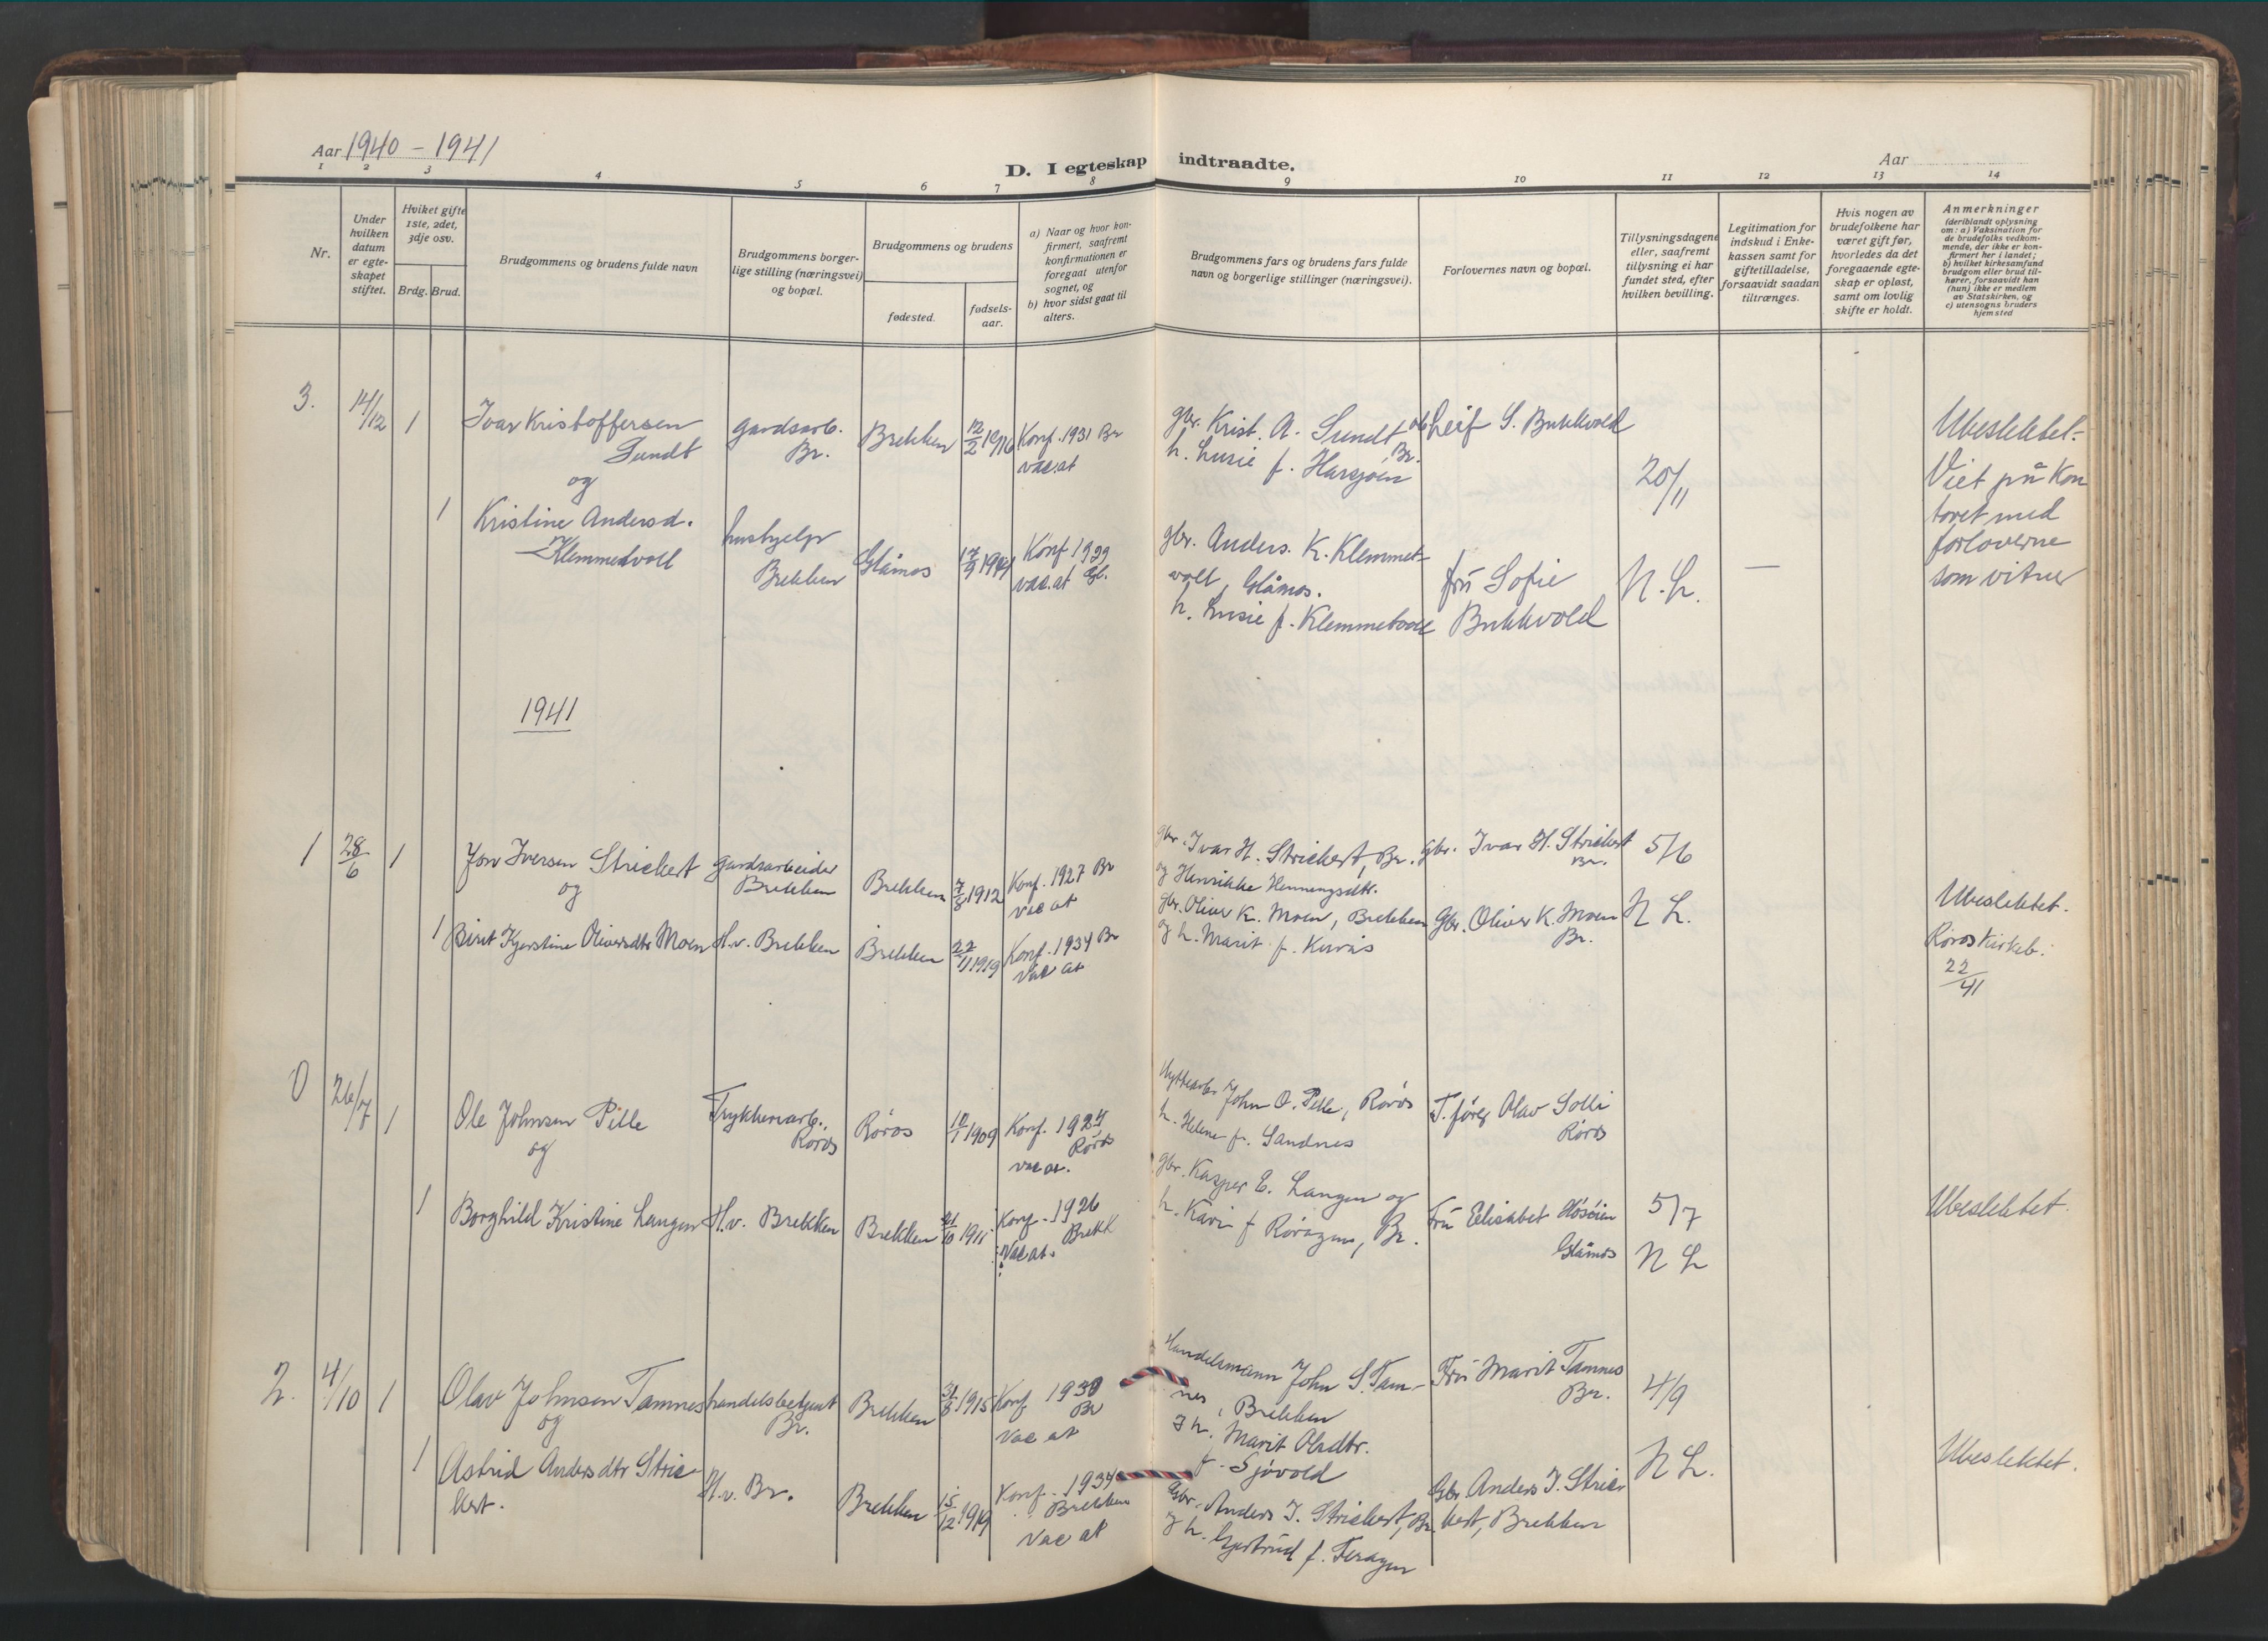 Aar 1940 - 1941
D. I egteskap indtraadte.
Aar
1 2 3 4 5 6 7 8 9 10 11 12 13 14
Nr.
Under
hvilken
datum
er egte-
skapet
stiftet.
Hviket gifte
1ste, 2det,
3dje osv.
Brdg. Brud.
Brudgommens og brudens fulde navn
Brudgommens borger-
lige stilling (næringsvei)
og bopæl.
Brudgommens og brudens
fødested.
fødsels-
aar.
a) Naar og hvor kon-
firmert, saafremt
konfirmationen er
foregaat utenfor
sognet, og
b) hvor sidst gaat til
alters.
Brudgommens fars og brudens fars fulde
navn og borgerlige stillinger (næringsvei).
Forlovernes navn og bopæl.
Tillysningsdagene
eller, saafremt
tillysning ei har
fundet sted, efter
hvilken bevilling.
Legitimation for
indskud i Enke-
kassen samt for
giftetilladelse,
forsaavidt saadan
tiltrænges.
Hvis nogen av
brudefolkene har
været gift før,
hvorledes da det
foregaaende egte-
skap er opløst,
samt om lovlig
skifte er holdt.
Anmerkninger
(deriblandt oplysning
om: a) Vaksination for
de brudefolks vedkom-
mende, der ikke er kon-
firmert her i landet;
b) hvilket kirkesamfund
brudgom eller brud til-
hører, forsaavidt han
(hun) ikke er medlem
av Statskirken, og
c) utensogns bruders
hjemsted
3.
14/12
1
Ivar Kristoffersen
Sundt
og
gardsarb.
Br.
Brekken
12/2 1916
Konf. 1931 Br
vac. at
gbr. Krist. A. Sundt
Br.
h. Lusie f. Harsjøen
Leif S. Bukkvold
20/11
Ubeslektet.
Viet på Kon
toret med
forloverne
som vitner
1
Kristine Andersd.
Klemmetvoll
hushjelp
Brekken
Glåmos
Konf 19
vac. at Gl.
gbr. Anders. K. Klemmet-
voll, Glåmos.
h. Lusie f. Klemmetvoll
fru Sofie
Bukkvold
N. L.
—
1941
1
28/6
1
Jon Iversen Strickert
og
gardsarbeider
Brekken
Brekken
7/8 1912
Konf. 1927 Br
vac at
gbr. Ivar H. Strickert, Br.
og Henrikke Henningsdtr.
Gbr. Ivar H. Strickert
Br.
5/6
1
Birit Kjerstine Oliversdtr Moen
H.v. Brekken
Brekken
22/11 1919
Konf. 1934 Br
vac at
gbr. Oliver K. Moen, Brekken
og h. Marit f. Kurås
Gbr. Oliver K. Moen
Br.
N L.
Ubeslektet.
Røros Kirkeb.
22/41
0
26/7
1
Ole Johnsen Pille
og
Trykkeriarb.,
Røros
Røros
10/1 1909
Konf. 1924
Røros
vac at.
Hyttearb. John O. Pille, Røros
h. Helene f. Sandnes
Olav Solli
Røros
1
Borghild Kristine Langen
H.v. Brekken
Brekken
21/10 1911
Konf. 1926
Brekk
Vac at.
gbr. Kasper E. Langen og
h. Kari f Rørågen, Br.
Fru Elisabet Høsøien
Glåmos
5/7
N L
Ubeslektet.
2.
4/10
1
Olav Johnsen Tamnes
og
handelsbetjent
Br.
Brekken
1915
Konf 1930
Br
vac at
Handelsmann John S. Tam-
nes, Brekken
og h. Marit Olsdtr.
f. Sjøvold
Fru Marit Tamnes
Br.
4/9
1
Astrid Andersdtr Stric-
kert.
H.v. Br.
Brekken
15/12 1919
Konf. 1934
Brekken
vac at
Gbr. Anders J. Strickert, Br.
og h. Gjertrud f. Feragen
Gbr. Anders J. Stric-
kert, Brekken
N L.
Ubeslektet.